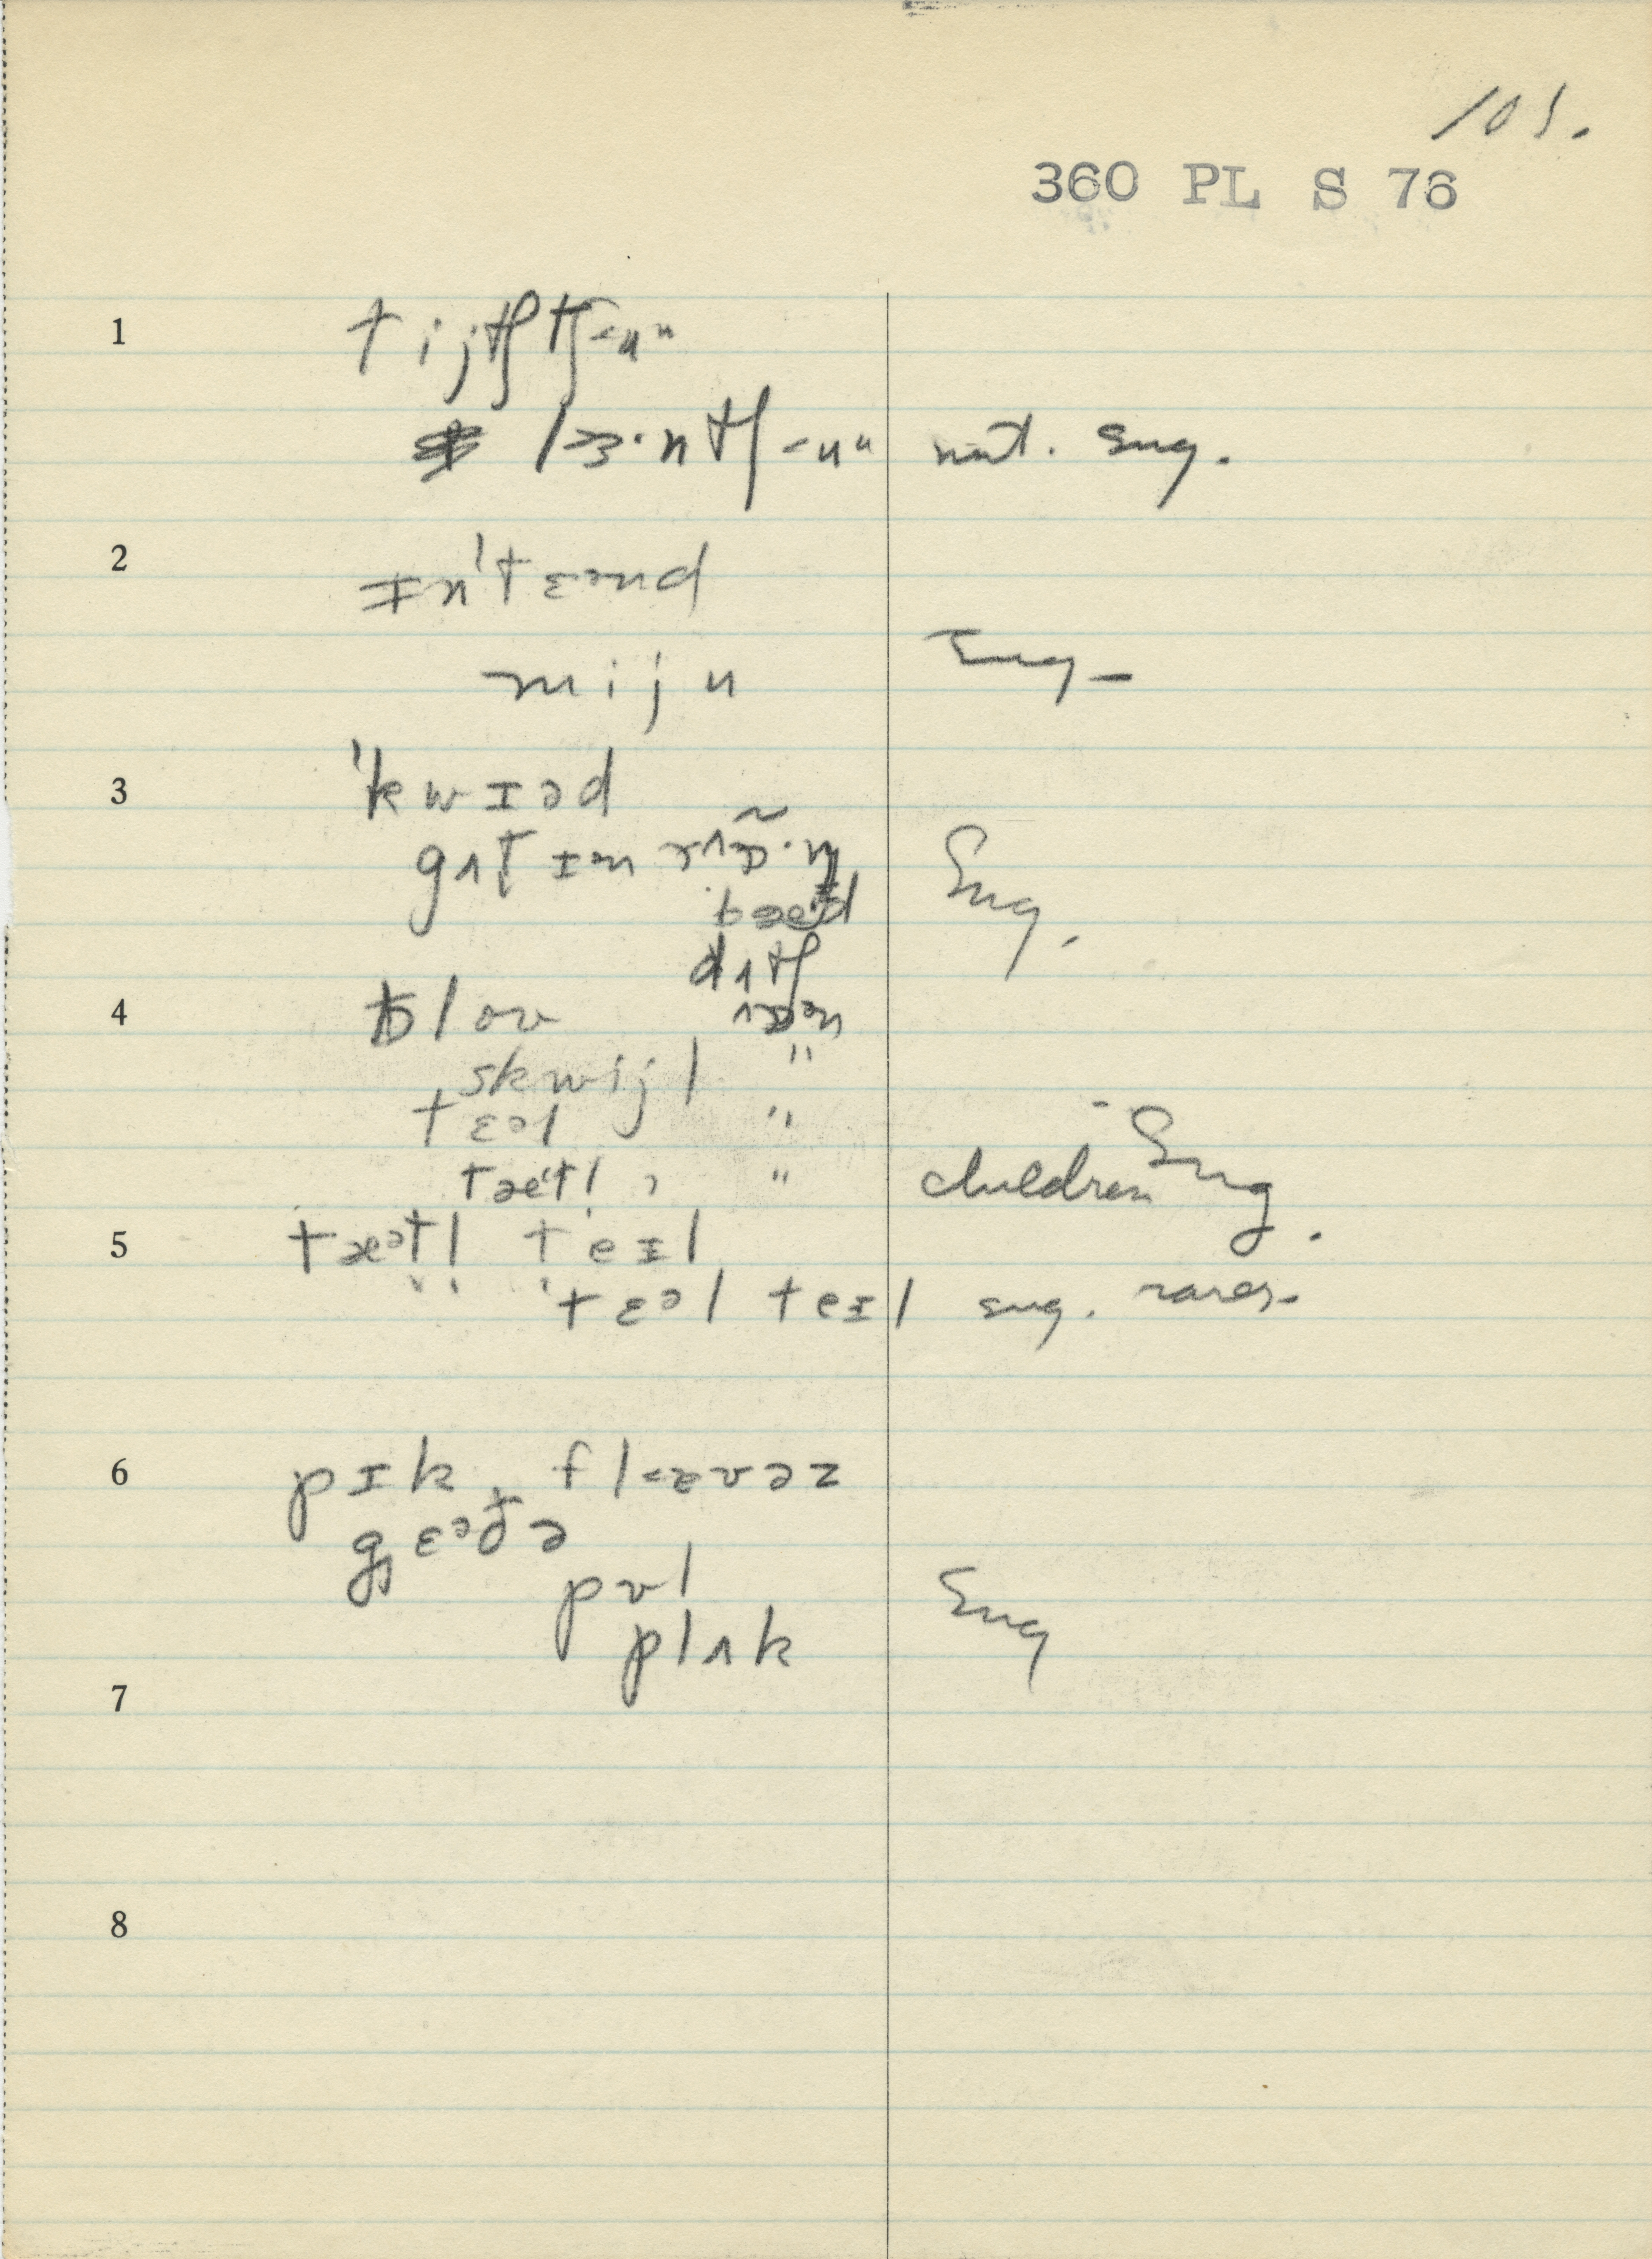 101.
360 PL S 76
1 tijtʃ tʃ-uᵘ
lɜ·ntʃ-uᵘ nat. sug.
2 ɪn'tɛᵊnd
miju Eng-
3 'kwɪəd
gʌt ɪᵊn rʌɒ̃·ŋ Sug.
bæᵊd
dɪtʃ
4 blov ɒᵊn
skwijl "
tɛᵊl "
tæᵊtl " children Sug.
5 tæᵊtl teɪl
tɛᵊl teɪl sug. rarer-
6 pɪk flævəz
gɛᵊðə
pʊl
plʌk Sug
7
8